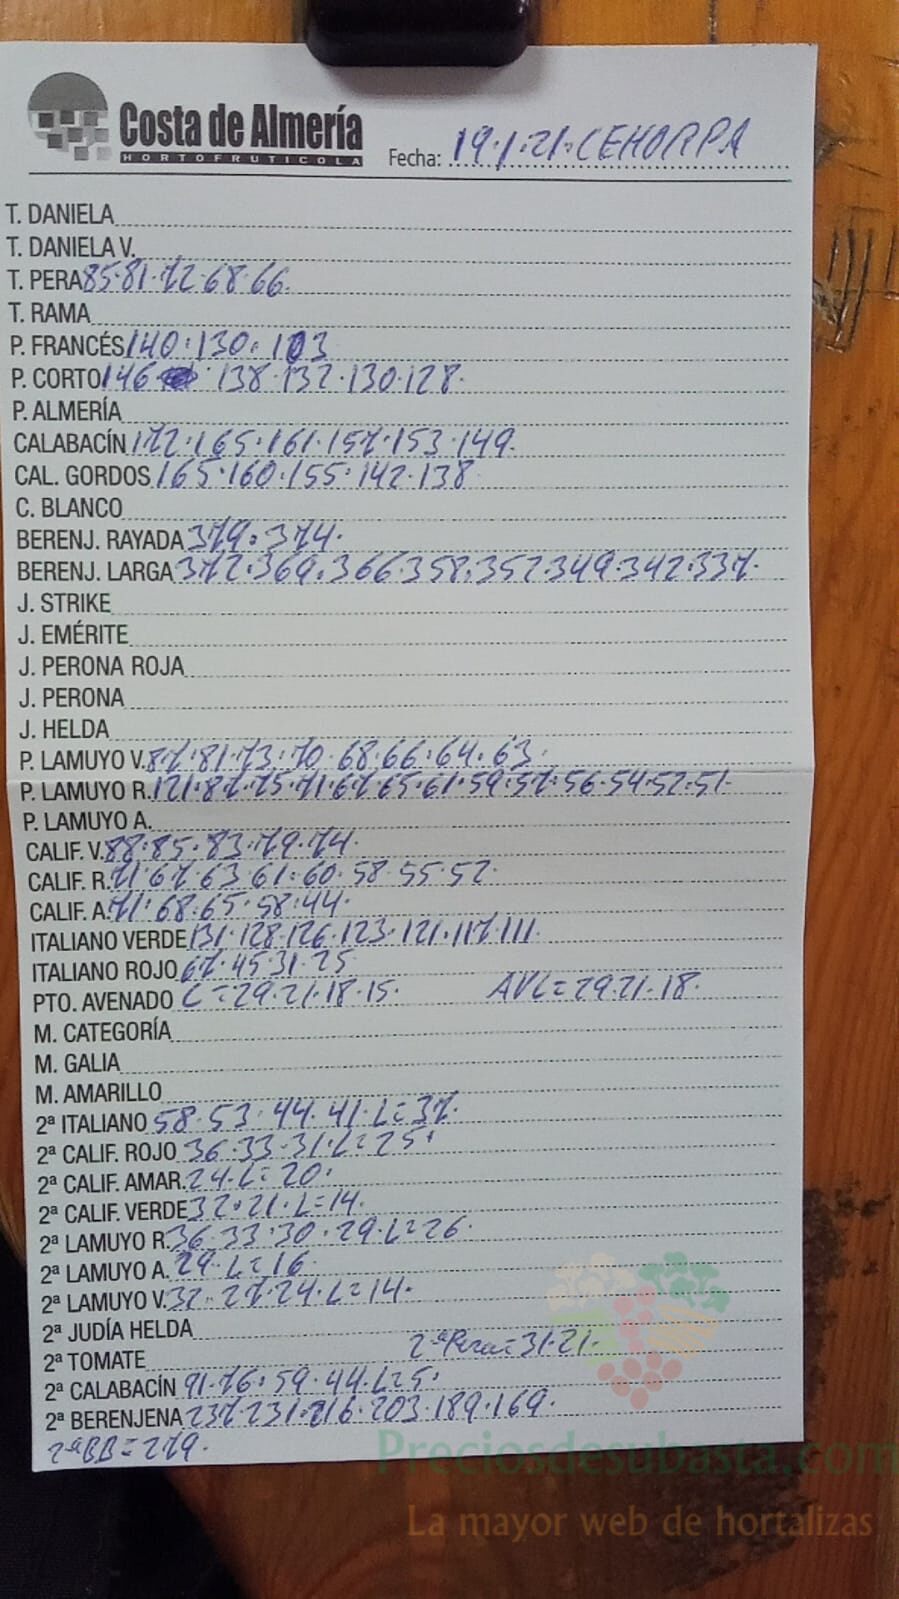 Costa de Almería
HORTOFRUTICOLA
Fecha: 19·1·21·CEHORPA
T. DANIELA
T. DANIELA V.
T. PERA 85·81·72·68·66·
T. RAMA
P. FRANCÉS 140·130·103
P. CORTO 146 · 138·132·130·128·
P. ALMERÍA
CALABACÍN 172·165·161·157·153·149·
CAL. GORDOS 165·160·155·142·138·
C. BLANCO
BERENJ. RAYADA 379·374·
BERENJ. LARGA 372·369·366·358·352·349·342·337·
J. STRIKE
J. EMÉRITE
J. PERONA ROJA
J. PERONA
J. HELDA
P. LAMUYO V. 87·81·73·70·68·66·64·63·
P. LAMUYO R. 121·87·75·71·67·65·61·59·57·56·54·52·51·
P. LAMUYO A.
CALIF. V. 88·85·83·79·74·
CALIF. R. 71·67·63·61·60·58·55·52·
CALIF. A. 71·68·65·58·44·
ITALIANO VERDE 131·128·126·123·121·117·111·
ITALIANO ROJO 67·45·31·25
PTO. AVENADO L=29·21·18·15· AVL=29·21·18·
M. CATEGORÍA
M. GALIA
M. AMARILLO
2ª ITALIANO 58·53·44·41·L=37·
2ª CALIF. ROJO 36·33·31·L=25·
2ª CALIF. AMAR. 24·L=20·
2ª CALIF. VERDE 32·21·L=14·
2ª LAMUYO R. 36·33·30·29·L=26·
2ª LAMUYO A. 29·L=16·
2ª LAMUYO V. 32·27·24·L=14·
2ª JUDÍA HELDA
2ª TOMATE 2ª Pera=31·21·
2ª CALABACÍN 91·76·59·44·L=5·
2ª BERENJENA 237·231·216·203·189·169·
2ªBB=279·
Preciosdesubasta.com
La mayor web de hortalizas